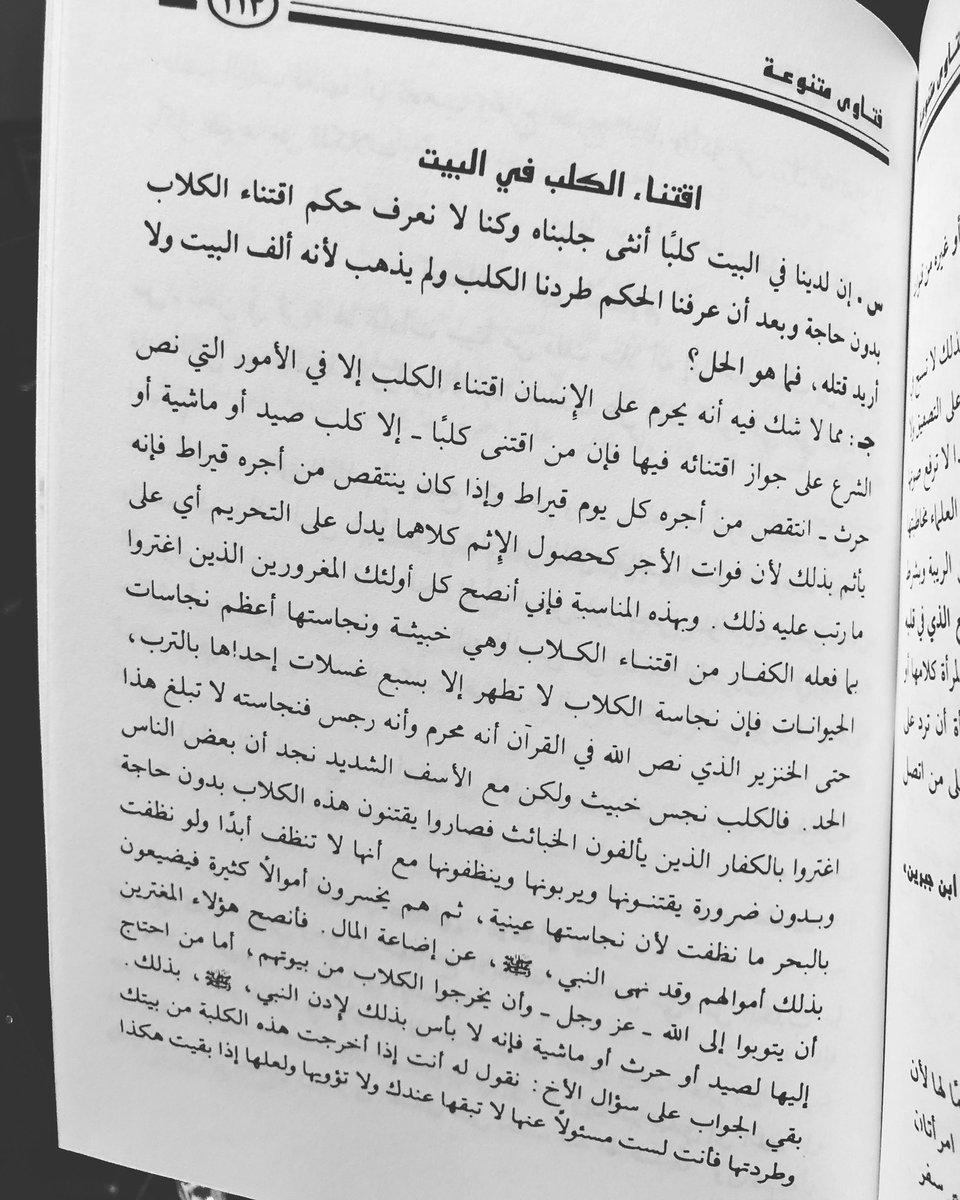 ١١٣
فتاوى متنوعة
اقتناء الكلب في البيت
س . إن لدينا في البيت كلبًا أنثى جلبناه وكنا لا نعرف حكم اقتناء الكلاب
بدون حاجة وبعد أن عرفنا الحكم طردنا الكلب ولم يذهب لأنه ألف البيت ولا
أريد قتله، فما هو الحل؟
جـ : مما لا شك فيه أنه يحرم على الإنسان اقتناء الكلب إلا في الأمور التي نص
الشرع على جواز اقتنائه فيها فإن من اقتنى كلبًا ـ إلا كلب صيد أو ماشية أو
حرث ـ انتقص من أجره كل يوم قيراط وإذا كان ينتقص من أجره قيراط فإنه
يأثم بذلك لأن فوات الأجر كحصول الإثم كلاهما يدل على التحريم أي على
ما رتب عليه ذلك . وبهذه المناسبة فإني أنصح كل أولئك المغرورين الذين اغتروا
بما فعله الكفار من اقتناء الكلاب وهي خبيثة ونجاستها أعظم نجاسات
الحيوانات فإن نجاسة الكلاب لا تطهر إلا بسبع غسلات إحداها بالترب،
حتى الخنزير الذي نص الله في القرآن أنه محرم وأنه رجس فنجاسته لا تبلغ هذا
الحد . فالكلب نجس خبيث ولكن مع الأسف الشديد نجد أن بعض الناس
اغتروا بالكفار الذين يألفون الخبائث فصاروا يقتنون هذه الكلاب بدون حاجة
وبدون ضرورة يقتنونها ويربونها وينظفونها مع أنها لا تنظف أبدًا ولو نظفت
بالبحر ما نظفت لأن نجاستها عينية، ثم هم يخسرون أموالاً كثيرة فيضيعون
بذلك أموالهم وقد نهى النبي، ﷺ، عن إضاعة المال . فأنصح هؤلاء المغترين
أن يتوبوا إلى الله ـ عز وجل ـ وأن يخرجوا الكلاب من بيوتهم، أما من احتاج
إليها لصيد أو حرث أو ماشية فإنه لا بأس بذلك لإدن النبي، ﷺ، بذلك.
بقي الجواب على سؤال الأخ : نقول له أنت إذا أخرجت هذه الكلبة من بيتك
وطردتها فأنت لست مسئولاً عنها لا تبقها عندك ولا تؤويها ولعلها إذا بقيت هكذا